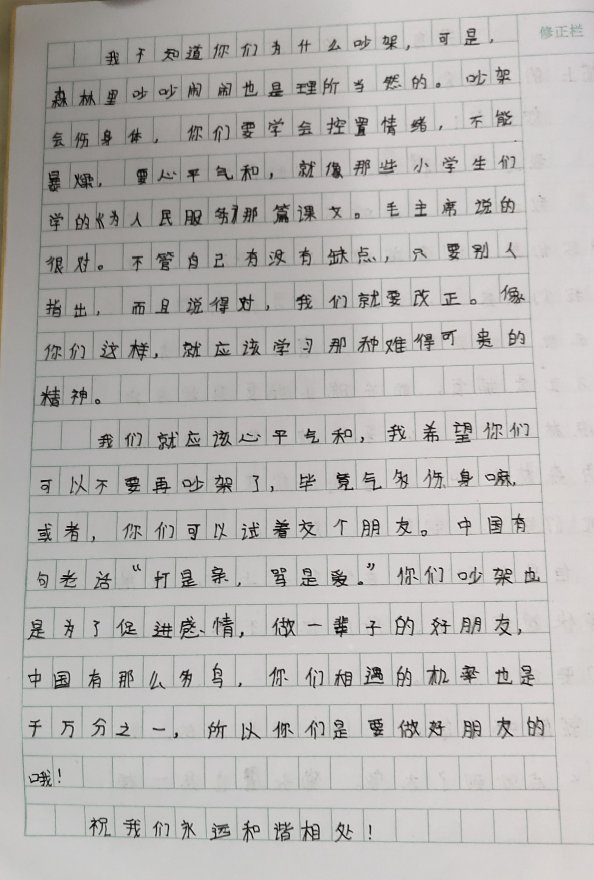 修正栏
我不知道你们为什么吵架，可是，
森林里吵吵闹闹也是理所当然的。吵架
会伤身体，你们要学会控置情绪，不能
暴燥，要心平气和，就像那些小学生们
学的《为人民服务》那篇课文。毛主席说的
很对。不管自己有没有缺点，只要别人
指出，而且说得对，我们就要改正。像
你们这样，就应该学习那种难得可贵的
精神。
我们就应该心平气和，我希望你们
可以不要再吵架了，毕竟气多伤身嘛，
或者，你们可以试着交个朋友。中国有
句老话“打是亲，骂是爱。”你们吵架也
是为了促进感情，做一辈子的好朋友，
中国有那么多鸟，你们相遇的机率也是
千万分之一，所以你们是要做好朋友的
哦！
祝我们永远和谐相处！